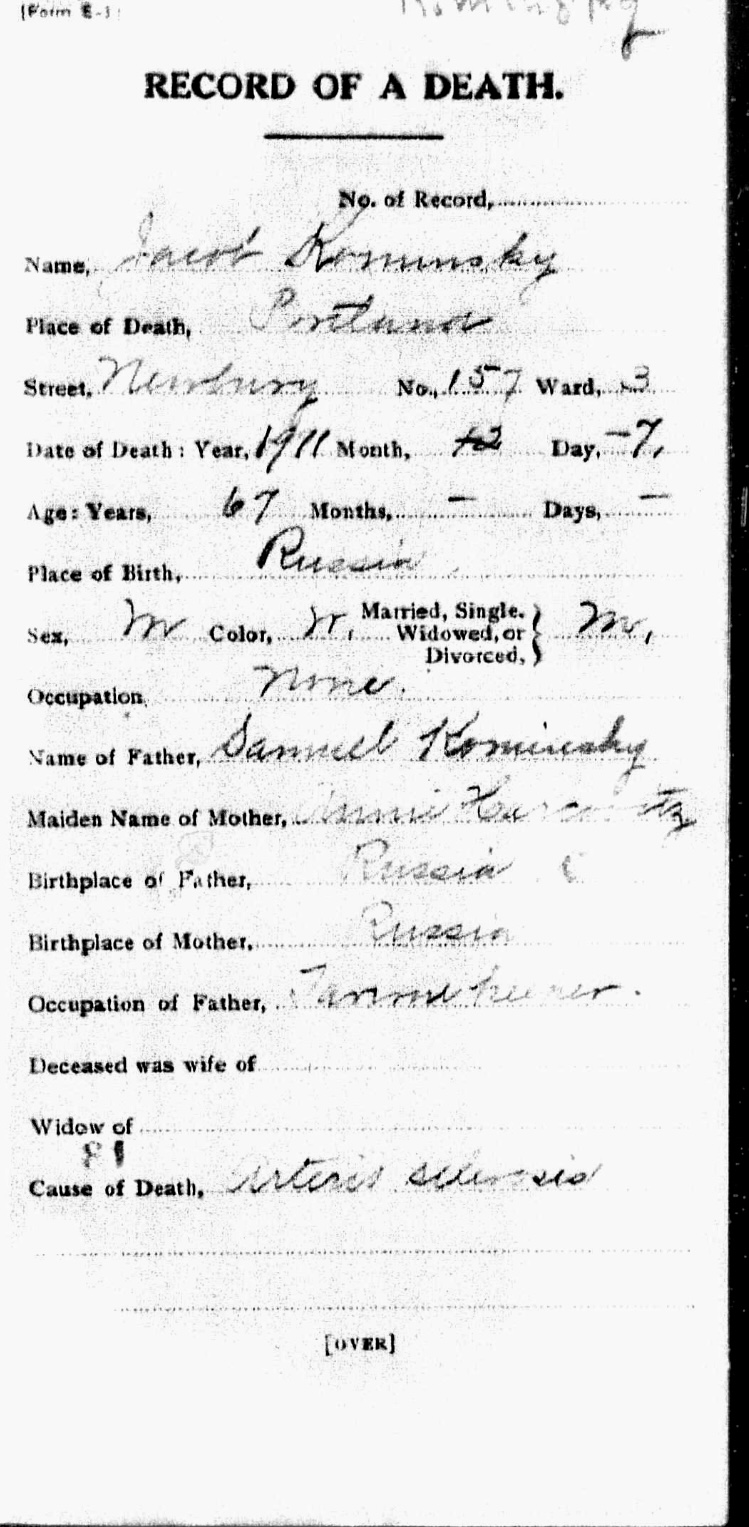 [Form E-]
Kominsky
RECORD OF A DEATH.
No. of Record,
Name, Jacob Kominsky
Place of Death, Portland
Street, Newbury No., 157 Ward, 3
Date of Death: Year, 1911 Month, 12 Day, -7,
Age: Years, 67 Months, - Days, -
Place of Birth, Russia
Sex, M Color, W, Married, Single, Widowed, or Divorced, } M,
Occupation, None.
Name of Father, Samuel Kominsky
Maiden Name of Mother, Annie
Birthplace of Father, Russia
Birthplace of Mother, Russia
Occupation of Father,
Deceased was wife of
Widow of
81
Cause of Death, Arterio sclerosis
[OVER]